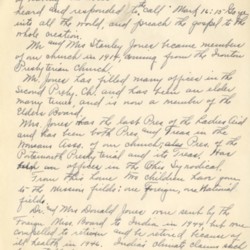 heard and responded to "call" Mark 16:15 "Go ye
into all the world, and preach the gospel to the
whole creation.
Mr. and Mrs Stanley Jones became members
of our church in 1919, coming from the Ironton
Presbyterian Church.
Mr. Jones has filled many offices in the
Second Presby. Ch. and has been an elder
many times, and is now a member of the
Elders Board.
Mrs Jones was the last Pres of the Ladies Aid
and has been both Pres and Treas in the
Missions Asso. of our church, also Pres of the
Portsmouth Presbyterial and its Treas. Has
an office in the Ohio Synodical.
From this home two children have gone
to the Mission fields; one foreign, one National
fields.
Dr. and Mrs Donald Jones were sent by the
Foreign Miss Board to India in but were
compelled to return because of
ill health in 1946. India's climate